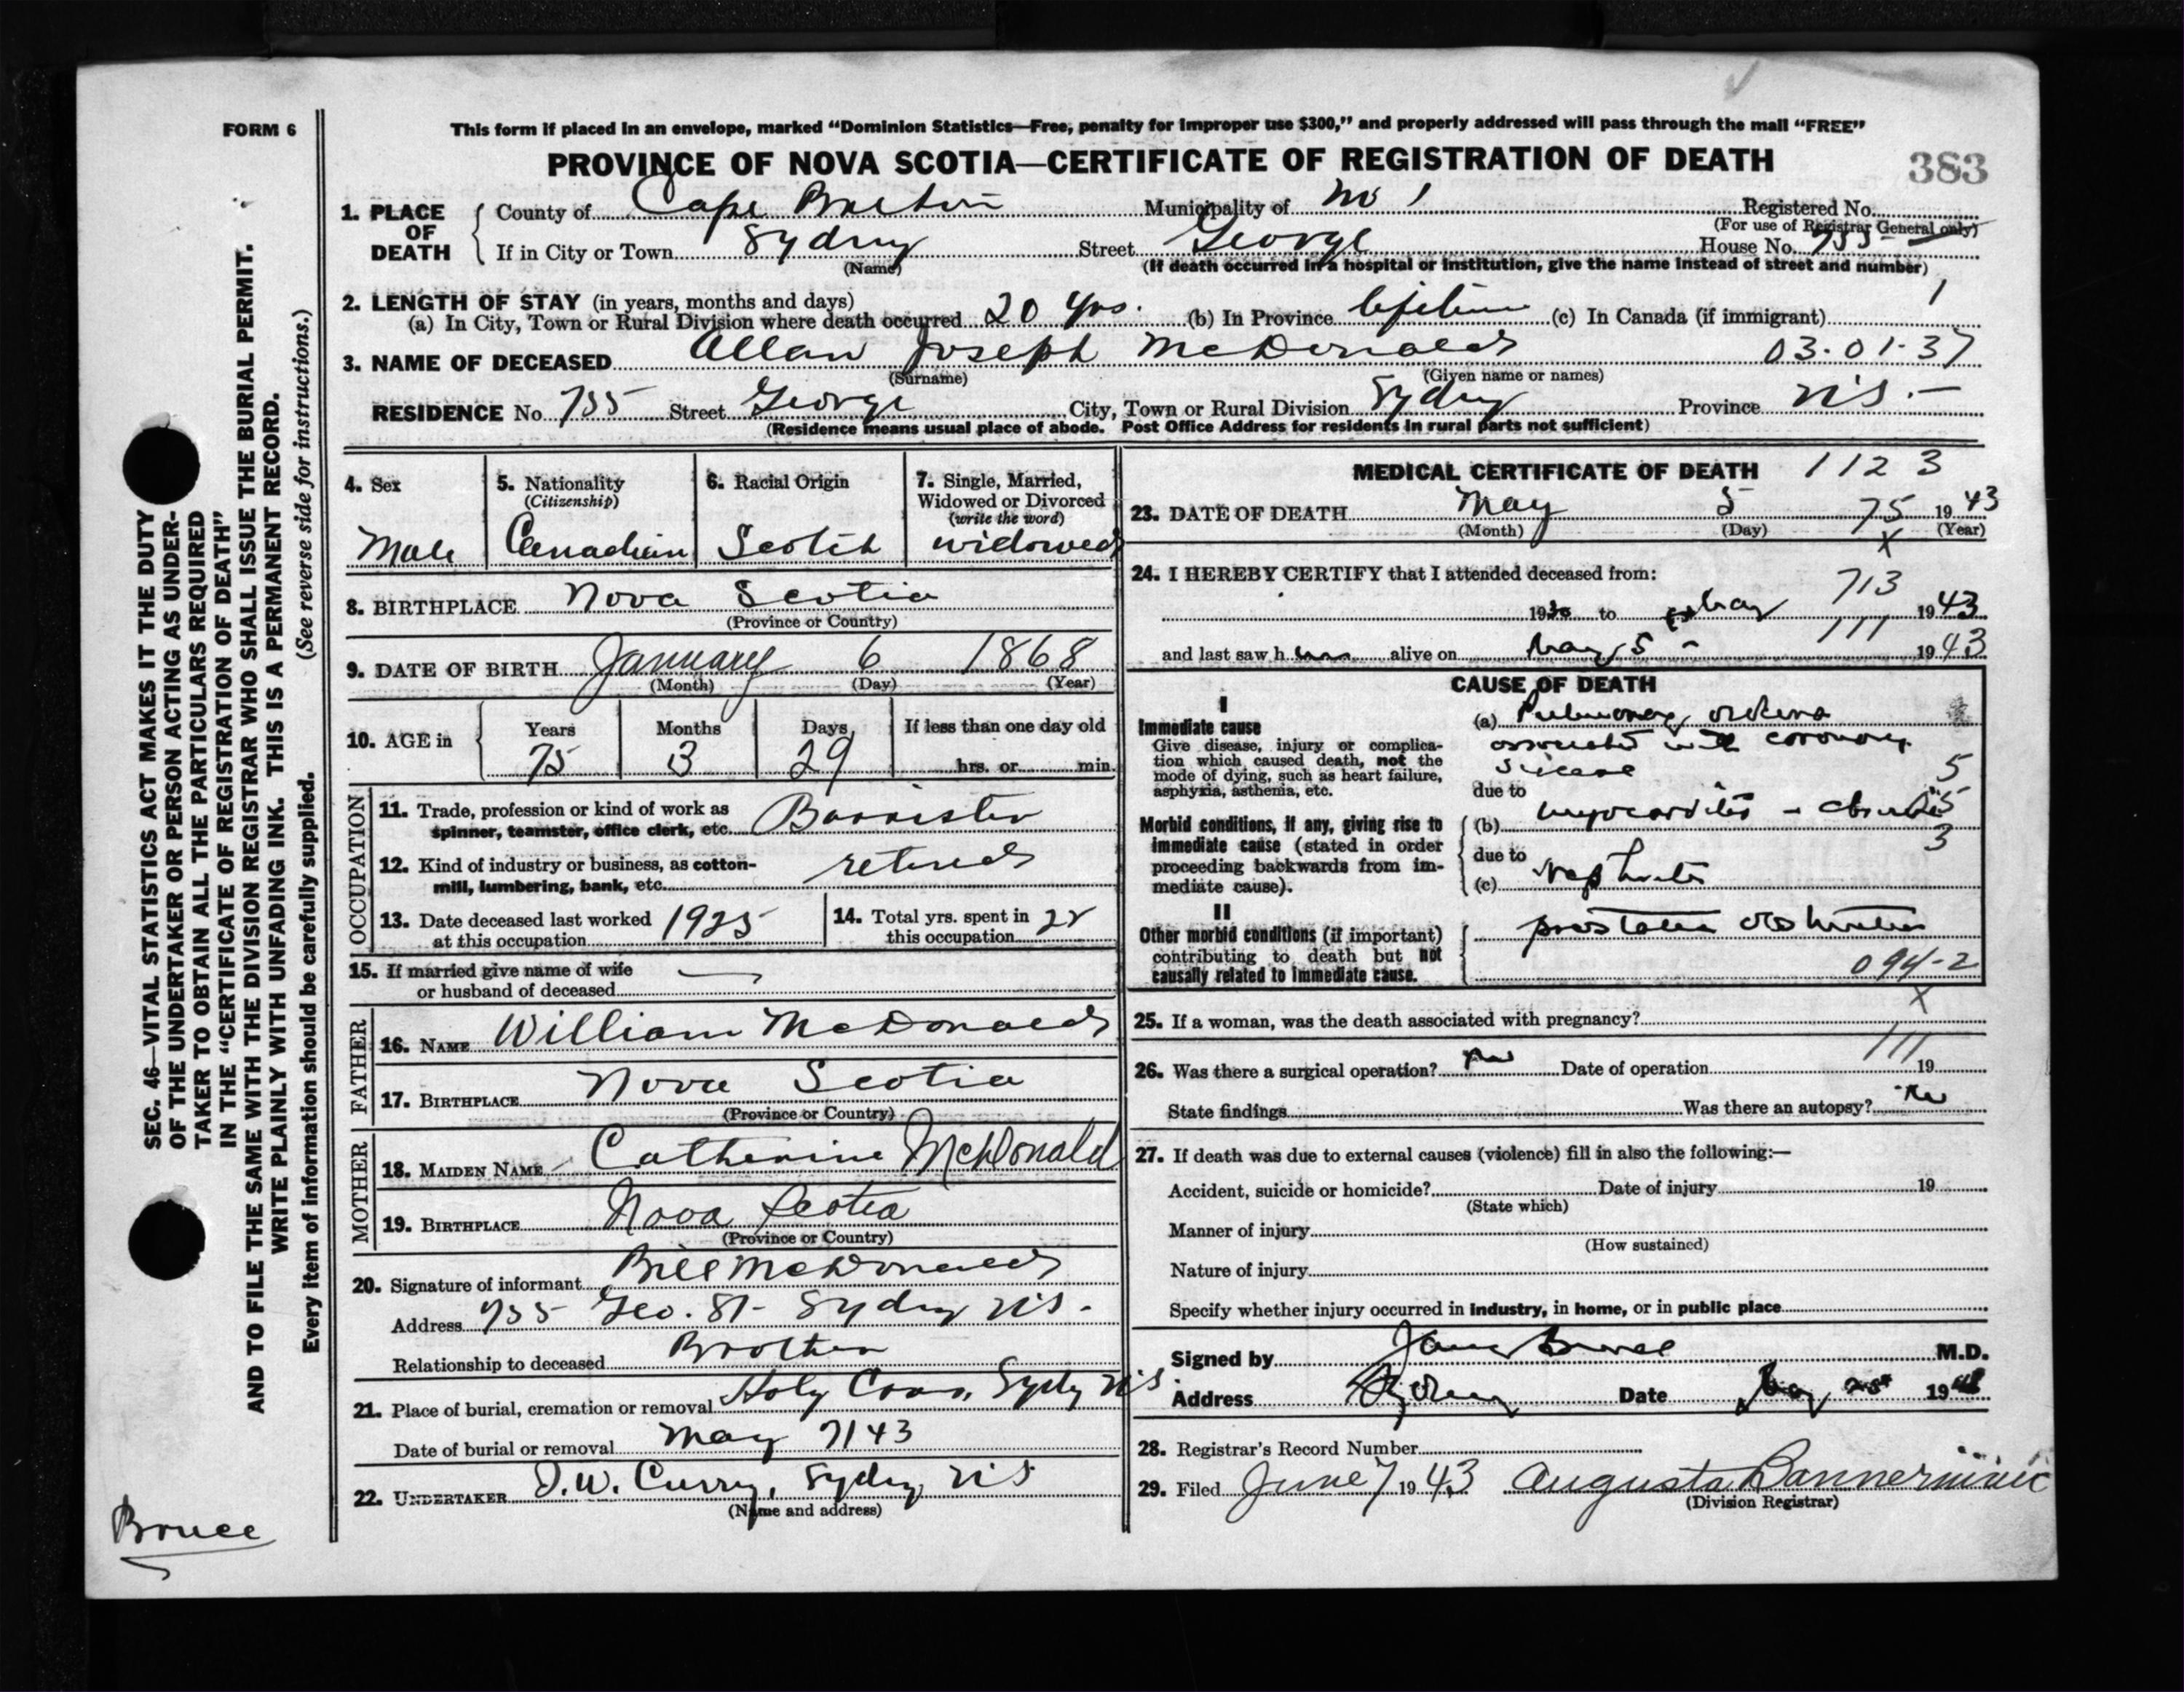 FORM 6
This form if placed in an envelope, marked “Dominion Statistics—Free, penalty for improper use $300,” and properly addressed will pass through the mail “FREE”
PROVINCE OF NOVA SCOTIA—CERTIFICATE OF REGISTRATION OF DEATH
383
1. PLACE OF DEATH
County of Cape Breton Municipality of No 1 Registered No.
(For use of Registrar General only)
If in City or Town Sydney Street George House No. 735
(Name) (If death occurred in a hospital or institution, give the name instead of street and number)
1
2. LENGTH OF STAY (in years, months and days)
(a) In City, Town or Rural Division where death occurred 20 yrs. (b) In Province lifetime (c) In Canada (if immigrant)
3. NAME OF DECEASED Allan Joseph McDonald 03-01-37
(Surname) (Given name or names)
RESIDENCE No. 735 Street George City, Town or Rural Division Sydney Province N.S. —
(Residence means usual place of abode. Post Office Address for residents in rural parts not sufficient)
4. Sex
Male
5. Nationality
(Citizenship)
Canadian
6. Racial Origin
Scotch
7. Single, Married,
Widowed or Divorced
(write the word)
widowed
8. BIRTHPLACE Nova Scotia
(Province or Country)
9. DATE OF BIRTH January 6 1868
(Month) (Day) (Year)
10. AGE in
Years Months Days If less than one day old
75 3 29 hrs. or min.
OCCUPATION
11. Trade, profession or kind of work as
spinner, teamster, office clerk, etc. Barrister
12. Kind of industry or business, as cotton-
mill, lumbering, bank, etc. retired
13. Date deceased last worked
at this occupation 1925
14. Total yrs. spent in
this occupation
15. If married give name of wife
or husband of deceased —
FATHER
16. NAME William McDonald
17. BIRTHPLACE Nova Scotia
(Province or Country)
MOTHER
18. MAIDEN NAME Catherine McDonald
19. BIRTHPLACE Nova Scotia
(Province or Country)
20. Signature of informant Bill McDonald
Address 735 Geo. St- Sydney N.S.
Relationship to deceased Brother
21. Place of burial, cremation or removal Holy Cross, Sydney N.S.
Date of burial or removal May 7/43
22. UNDERTAKER Curry, Sydney N.S
(Name and address)
MEDICAL CERTIFICATE OF DEATH 1123
23. DATE OF DEATH May 5 75 1943
(Month) (Day) (Year)
x
24. I HEREBY CERTIFY that I attended deceased from:
713
1930 to May 1943
111
and last saw h im alive on May 5 - 1943
CAUSE OF DEATH
I
Immediate cause
Give disease, injury or complica-
tion which caused death, not the
mode of dying, such as heart failure,
asphyxia, asthenia, etc.
(a) Pulmonary oedema
associated with coronary
disease
5
due to
Morbid conditions, if any, giving rise to
immediate cause (stated in order
proceeding backwards from im-
mediate cause).
(b) myocarditis - chronic
3
due to
(c) Nephritis
II
Other morbid conditions (if important)
contributing to death but not
causally related to immediate cause.
prostatic obstruction
094-2
x
25. If a woman, was the death associated with pregnancy?
111
26. Was there a surgical operation? no Date of operation 19
State findings Was there an autopsy? no
27. If death was due to external causes (violence) fill in also the following:—
Accident, suicide or homicide? Date of injury 19
(State which)
Manner of injury
(How sustained)
Nature of injury
Specify whether injury occurred in industry, in home, or in public place
Signed by James Bruce M.D.
Address Sydney Date May 19
28. Registrar's Record Number
29. Filed June 7 1943 Augusta
(Division Registrar)
SEC. 46—VITAL STATISTICS ACT MAKES IT THE DUTY
OF THE UNDERTAKER OR PERSON ACTING AS UNDER-
TAKER TO OBTAIN ALL THE PARTICULARS REQUIRED
IN THE “CERTIFICATE OF REGISTRATION OF DEATH”
AND TO FILE THE SAME WITH THE DIVISION REGISTRAR WHO SHALL ISSUE THE BURIAL PERMIT.
WRITE PLAINLY WITH UNFADING INK. THIS IS A PERMANENT RECORD.
Every item of information should be carefully supplied. (See reverse side for instructions.)
Bruce